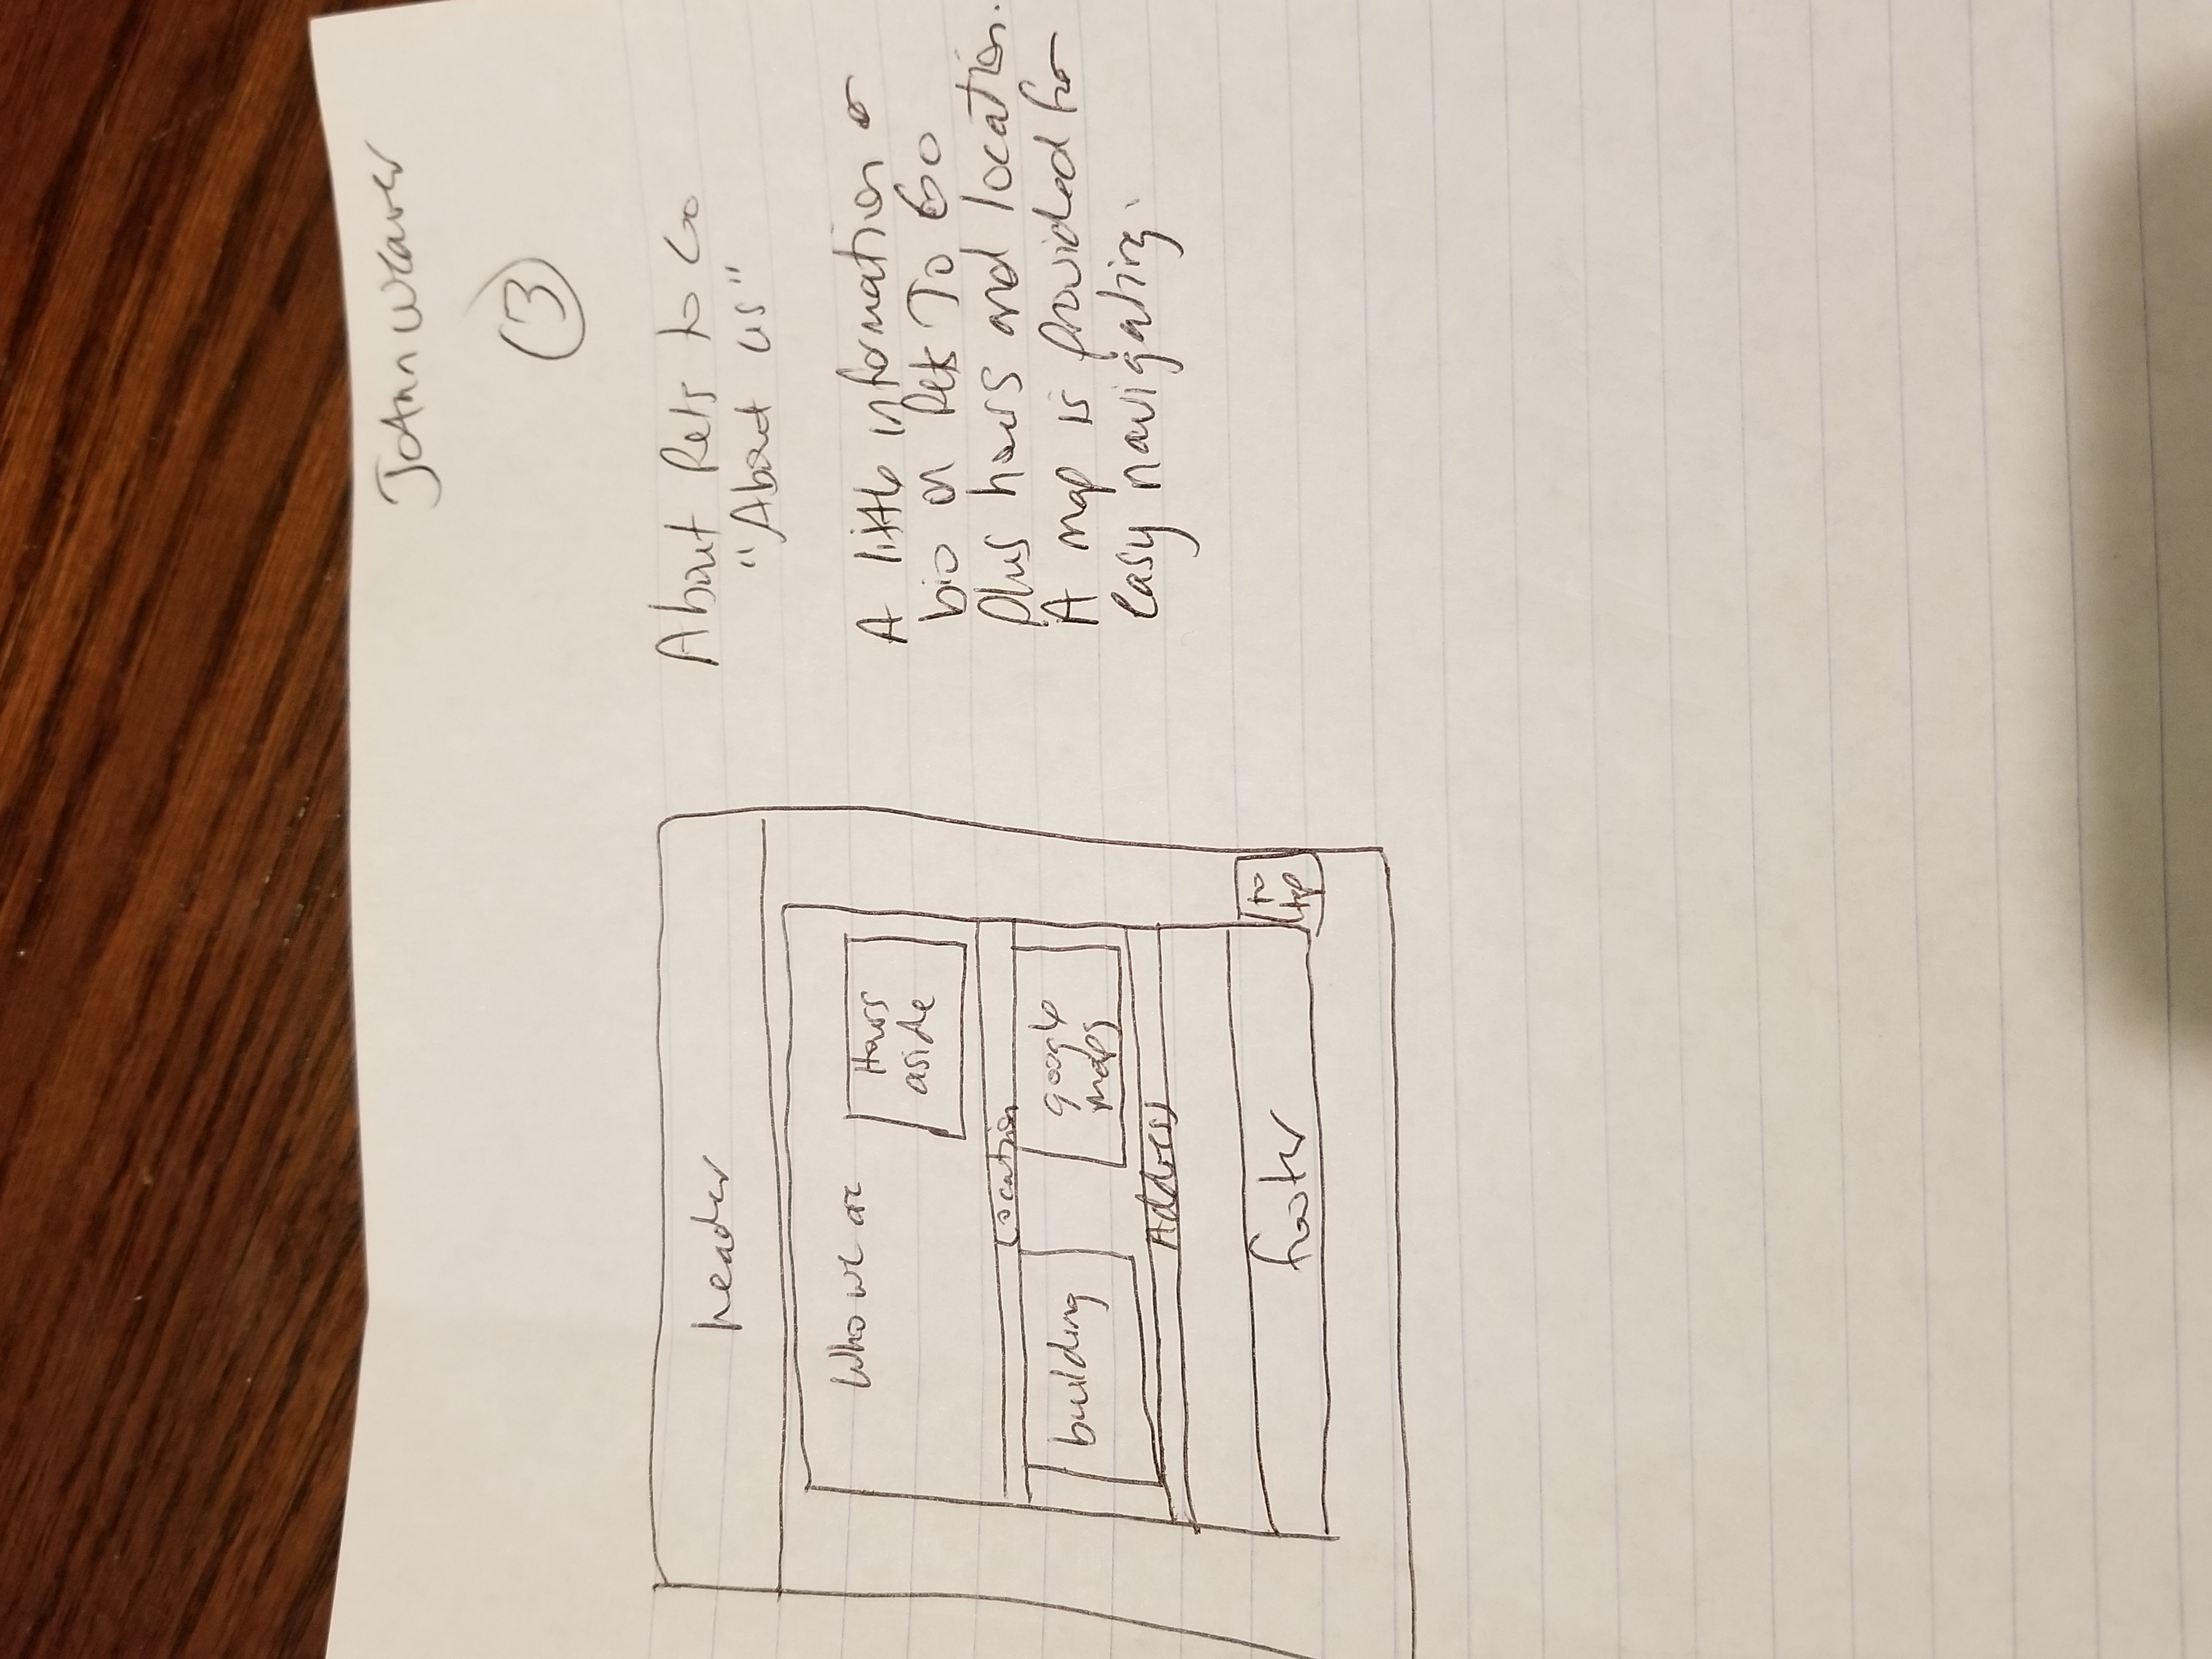 JoAnn Weaver
3
header
Who we are
Hours
aside
Location
building
google
maps
Address
footer
to
top
About Pets to Go
"About us"
A little information or
bio on Pets To Go
plus hours and location.
A map is provided for
easy navigating.